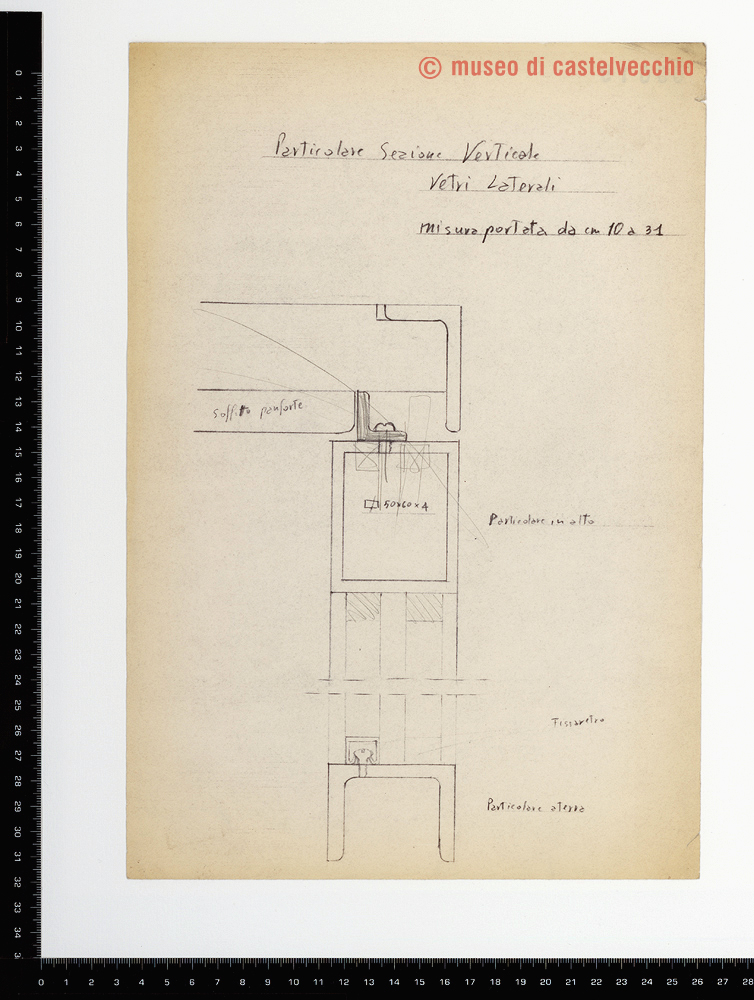 © museo di castelvecchio
Particolare Sezione Verticale
Vetri Laterali
misura portata da cm 10 a 31
soffitto panforte
50x60x4
Particolare in alto
Fissavetro
Particolare aterra
0 1 2 3 4 5 6 7 8 9 10 11 12 13 14 15 16 17 18 19 20 21 22 23 24 25 26 27 28 29 30 31 32 33 34 3
0 1 2 3 4 5 6 7 8 9 10 11 12 13 14 15 16 17 18 19 20 21 22 23 24 25 26 27 28